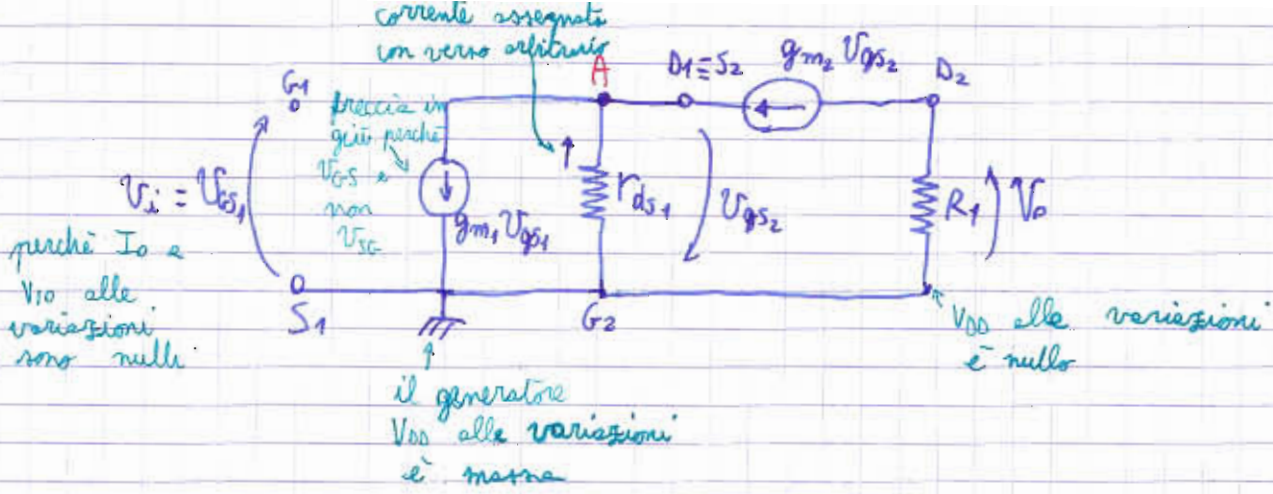 corrente assegnata
con verso arbitrario
A
D1≡S2
gm2 Vgs2
D2
G1
freccia in
giù perché
VGS e
non
VSG
Vi = VGS1
gm1 Vgs1
rds1
Vgs2
R1
Vo
perché Io e
VIO alle
variazioni
sono nulli
S1
G2
VDD alle variazioni
è nullo
il generatore
VDD alle variazioni
è massa